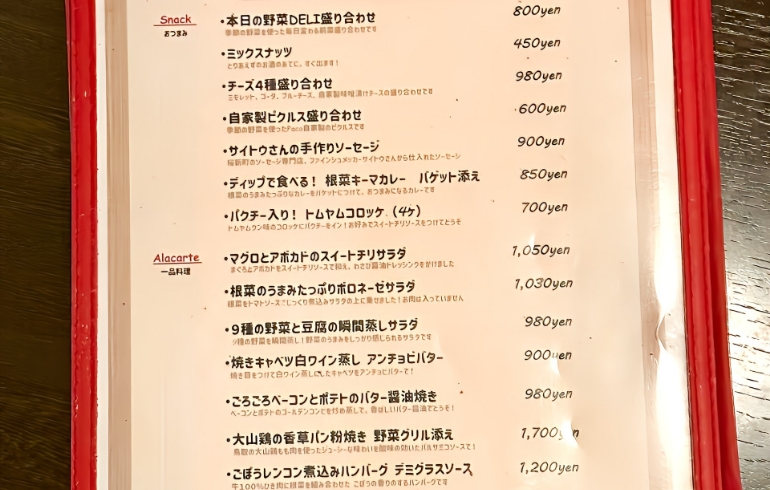 Snack
おつまみ
・本日の野菜DELI盛り合わせ 800yen
季節の野菜を使った毎日変わる前菜盛り合わせです
・ミックスナッツ 450yen
とりあえずのお酒のあてに、すぐ出ます！
・チーズ4種盛り合わせ 980yen
ミモレット、ゴーダ、ブルーチーズ、自家製味噌漬けチーズの盛り合わせです
・自家製ピクルス盛り合わせ 600yen
季節の野菜を使ったPaco自家製のピクルスです
・サイトウさんの手作りソーセージ 900yen
桜新町のソーセージ専門店、ファインシュメッカーサイトウさんから仕入れたソーセージ
・ディップで食べる！ 根菜キーマカレー バゲット添え 850yen
根菜のうまみたっぷりなカレーをバケットにつけて、おつまみになるカレーです
・パクチー入り！ トムヤムコロッケ (4ケ) 700yen
トムヤムクン味のコロッケにパクチーをイン！お好みでスイートチリソースをつけてどうぞ
Alacarte
一品料理
・マグロとアボカドのスイートチリサラダ 1,050yen
まぐろとアボカドをスイートチリソースで和え、わさび醤油ドレッシングをかけました
・根菜のうまみたっぷりボロネーゼサラダ 1,030yen
根菜をトマトソースでじっくり煮込みサラダの上に乗せました！お肉は入っていません
・9種の野菜と豆腐の瞬間蒸しサラダ 980yen
9種の野菜を瞬間蒸し！野菜のうまみをしっかり感じられるサラダです
・焼きキャベツ白ワイン蒸し アンチョビバター 900yen
焼き目をつけて白ワイン蒸しにしたキャベツをアンチョビバターで！
・ごろごろベーコンとポテトのバター醤油焼き 980yen
ベーコンとポテトのゴールデンコンビを炒め蒸しで、香ばしいバター醤油でどうぞ！
・大山鶏の香草パン粉焼き 野菜グリル添え 1,700yen
鳥取の大山鶏もも肉を使ったジューシーな味わいを酸味の効いたバルサミコソースで！
・ごぼうレンコン煮込みハンバーグ デミグラスソース 1,200yen
牛100%ひき肉に根菜を組み合わせた ごぼうの香りのするハンバーグです